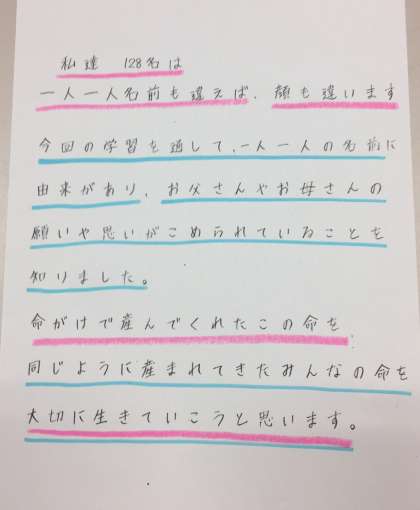 私達 128名は
一人一人名前も違えば、顔も違います
今回の学習を通して、一人一人の名前に
由来があり、お父さんやお母さんの
願いや思いがこめられていることを
知りました。
命がけで産んでくれたこの命を
同じように産まれてきたみんなの命を
大切に生きていこうと思います。